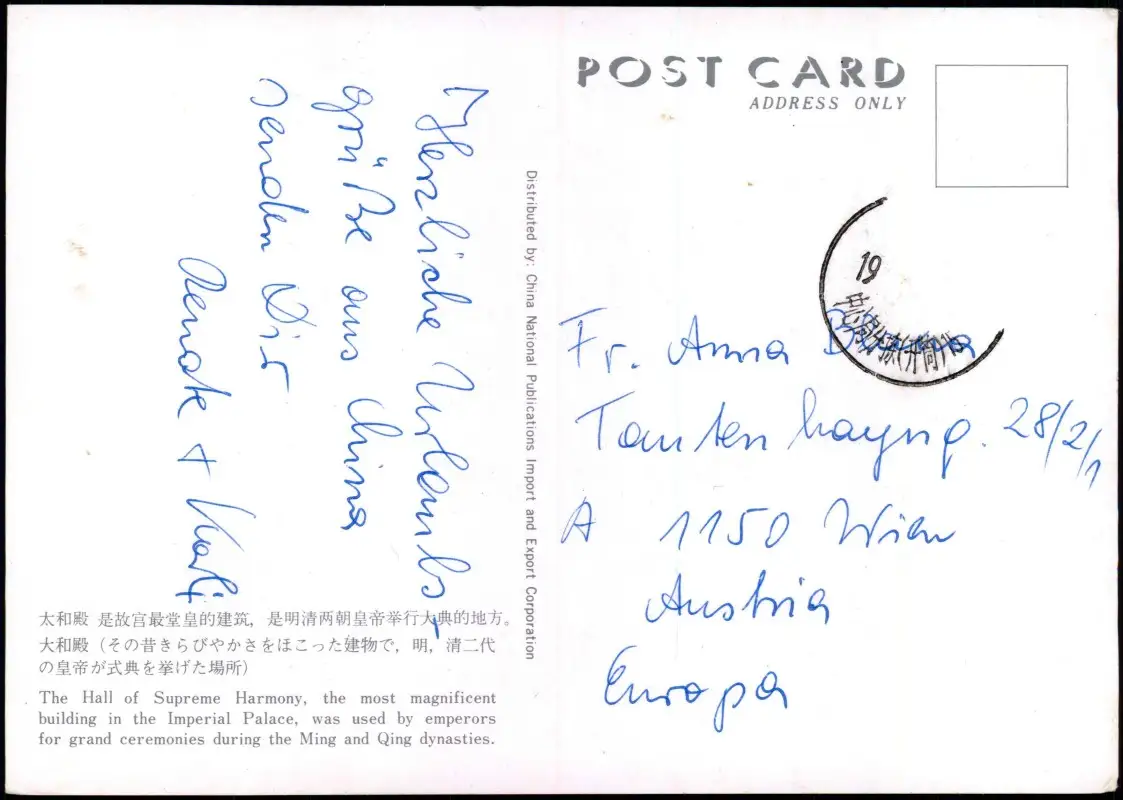 Herzliche Urlaubs-
grüße aus China
senden Dir
Renate + Karli
太和殿 是故宫最堂皇的建筑，是明清两朝皇帝举行大典的地方。
太和殿（その昔きらびやかさをほこった建物で，明，清二代
の皇帝が式典を挙げた場所）
The Hall of Supreme Harmony, the most magnificent
building in the Imperial Palace, was used by emperors
for grand ceremonies during the Ming and Qing dynasties.
Distributed by: China National Publications Import and Export Corporation
POST CARD
ADDRESS ONLY
19
Fr. Anna
Tautenhayng. 28/2/1
A 1150 Wien
Austria
Europa